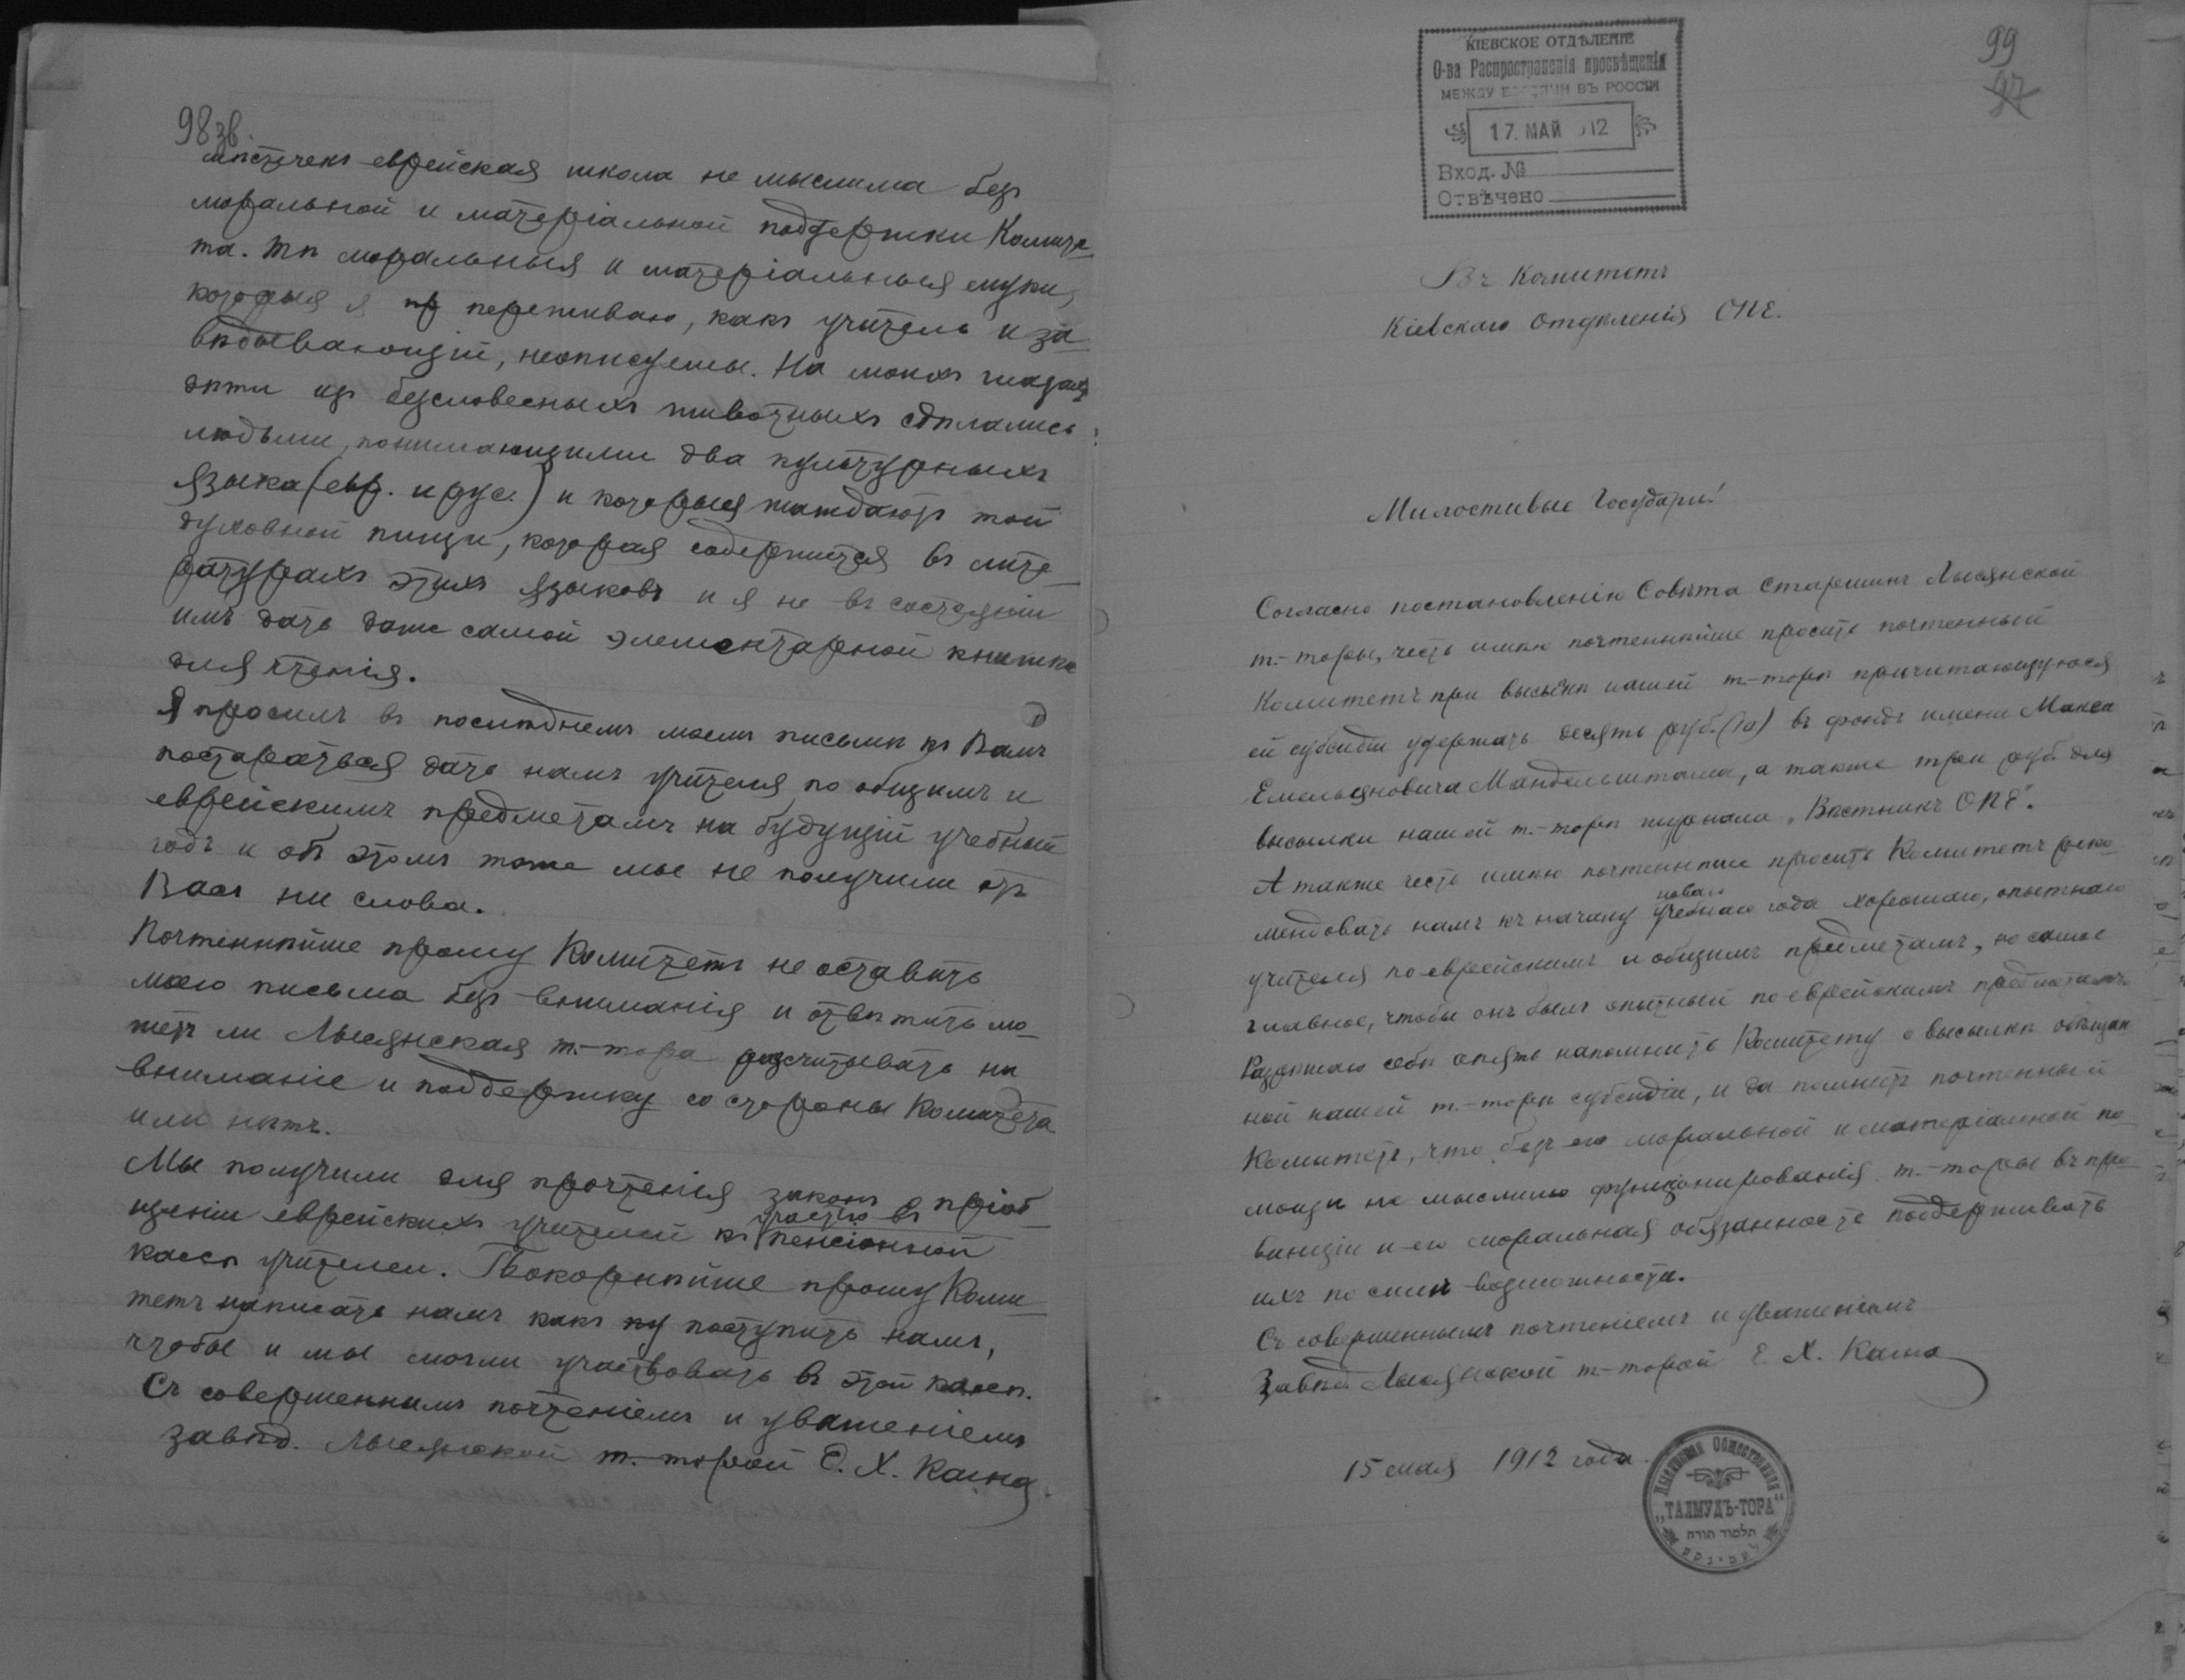 98 зв.
мѣстечекъ еврейская школа не мыслима безъ
моральной и матеріальной поддержки Комите-
та. Тѣ моральныя и матеріальныя муки,
которыя я пр переживаю, какъ учитель и за-
вѣдывающій, неописуемы. На моихъ глазахъ
дѣти изъ безсловесныхъ животныхъ сдѣлались
людьми, понимающими два культурныхъ
языка (евр. и рус.) и которыя жаждаютъ той
духовной пищи, которая содержится въ лите-
ратурахъ этихъ языковъ и я не въ состояніи
имъ дать даже самой элементарной книжки
для чтенія.
Я просилъ въ послѣднемъ моемъ письмѣ къ Вамъ
постараться дать намъ учителя по общимъ и
еврейскимъ предметамъ на будущій учебный
годъ и объ этомъ тоже мы не получили отъ
Васъ ни слова.
Почтеннѣйше прошу Комитетъ не оставить
моего письма безъ вниманія и отвѣтить мо-
жетъ ли Лысянская т.-тора разсчитывать на
вниманіе и поддержку со стороны Комитета
или нѣтъ.
Мы получили для прочтенія законъ о пріоб-
щеніи еврейскихъ учителей къ участію въ пенсіонной
кассѣ учителей. Покорнѣйше прошу Коми-
тетъ написать намъ какъ ну поступить намъ,
чтобы и мы могли участвовать въ этой кассѣ.
Съ совершеннымъ почтеніемъ и уваженіемъ
завѣд. Лысянской т.-торой Е. Х. Кацна
99
97
КІЕВСКОЕ ОТДѢЛЕНІЕ
О-ва Распространенія просвѣщенія
МЕЖДУ ЕВРЕЯМИ ВЪ РОССІИ
17. МАЙ 912
Вход. №
Отвѣчено
Въ Комитетъ
Кіевскаго Отдѣленія ОПЕ.
Милостивые Государи!
Согласно постановленію Совѣта Старшинъ Лысянской
т.-торы, честь имѣю почтеннѣйше просить почтенный
Комитетъ при высылкѣ нашей т.-торѣ причитающуюся
ей субсидіи удержать десять руб. (10) въ фондъ имени Макса
Емельяновича Мандельштама, а также три руб. для
высылки нашей т.-торѣ журнала „Вѣстникъ ОПЕ".
А также честь имѣю почтеннѣйше просить Комитетъ реко-
мендовать намъ къ началу новаго учебнаго года хорошаго, опытнаго
учителя по еврейскимъ и общимъ предметамъ, но самое
главное, чтобы онъ былъ опытный по еврейскимъ предметамъ.
Разрѣшаю себѣ опять напомнить Комитету о высылкѣ обѣщан
ной нашей т.-торѣ субсидіи, и да помнитъ почтенный
Комитетъ, что безъ его моральной и матеріальной по-
мощи не мыслимо функціонированія т.-торы въ про-
винціи и его моральная обязанность поддерживать
ихъ по силѣ возможности.
Съ совершеннымъ почтеніемъ и уваженіемъ
Завѣд. Лысянской т.-торой Е. Х. Кацна
15 мая 1912 года.
Лысянская Общественная
„ТАЛМУДЪ-ТОРА"
תלמוד תורה